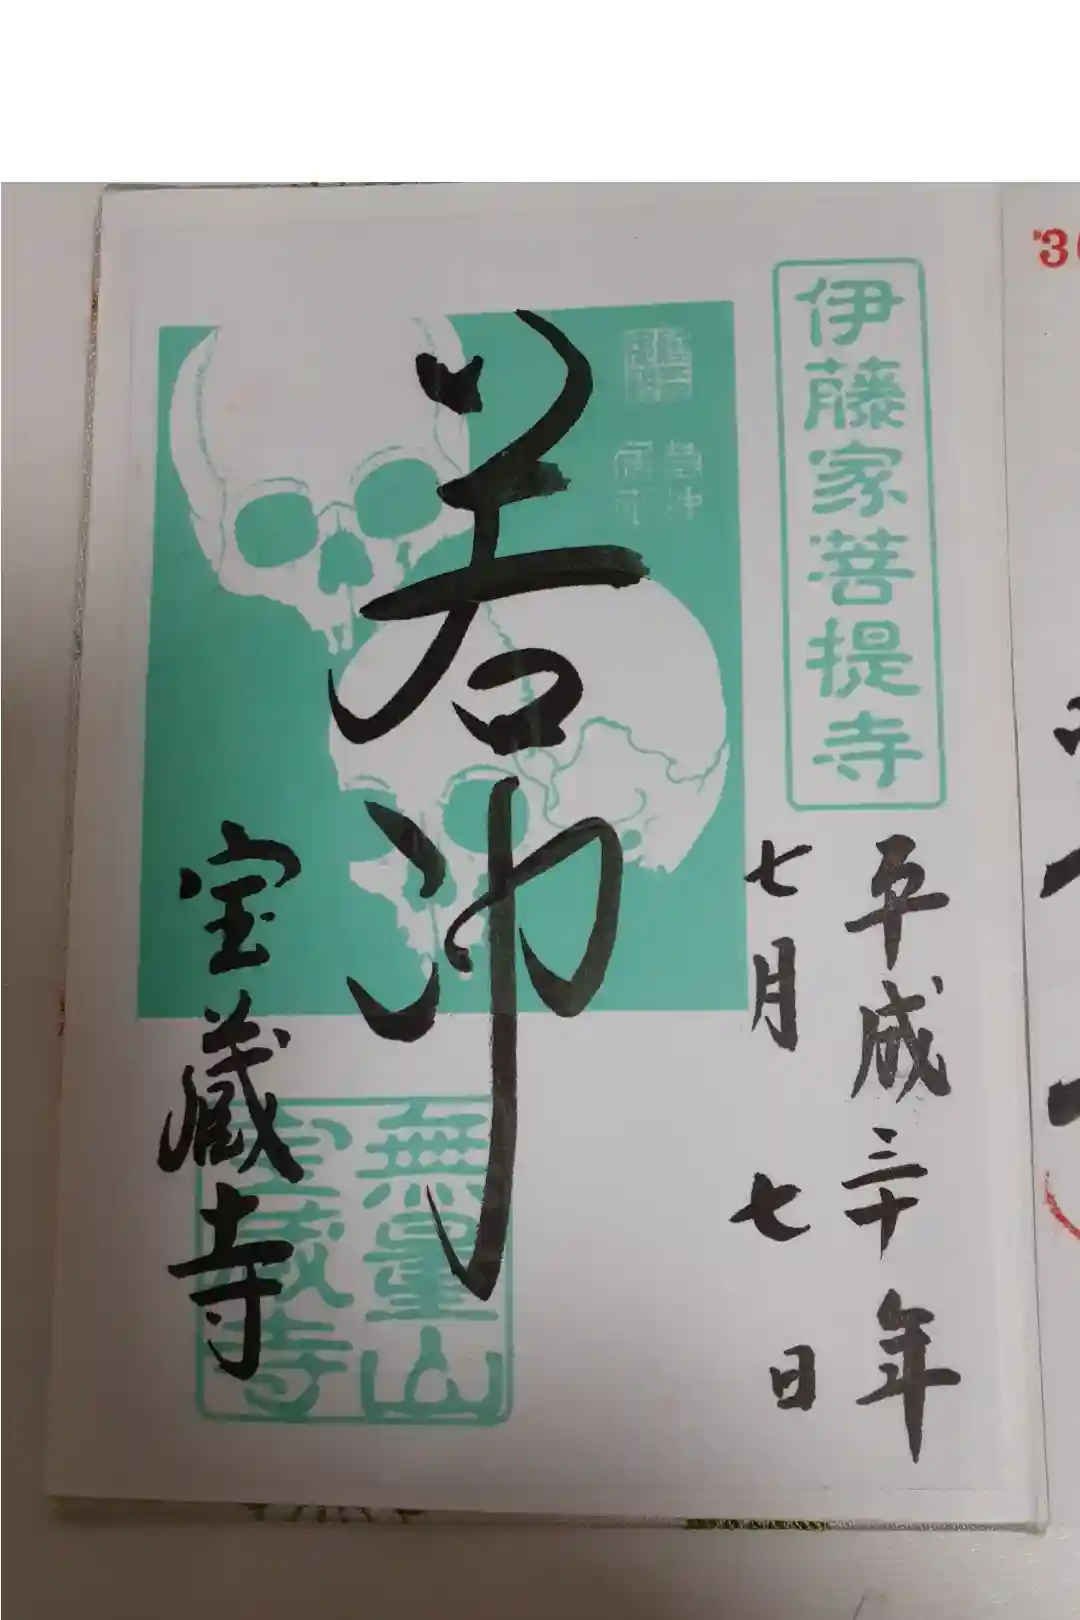 伊藤家菩提寺
平成三十年
七月七日
若冲
無量山
宝蔵寺
宝蔵寺
'3